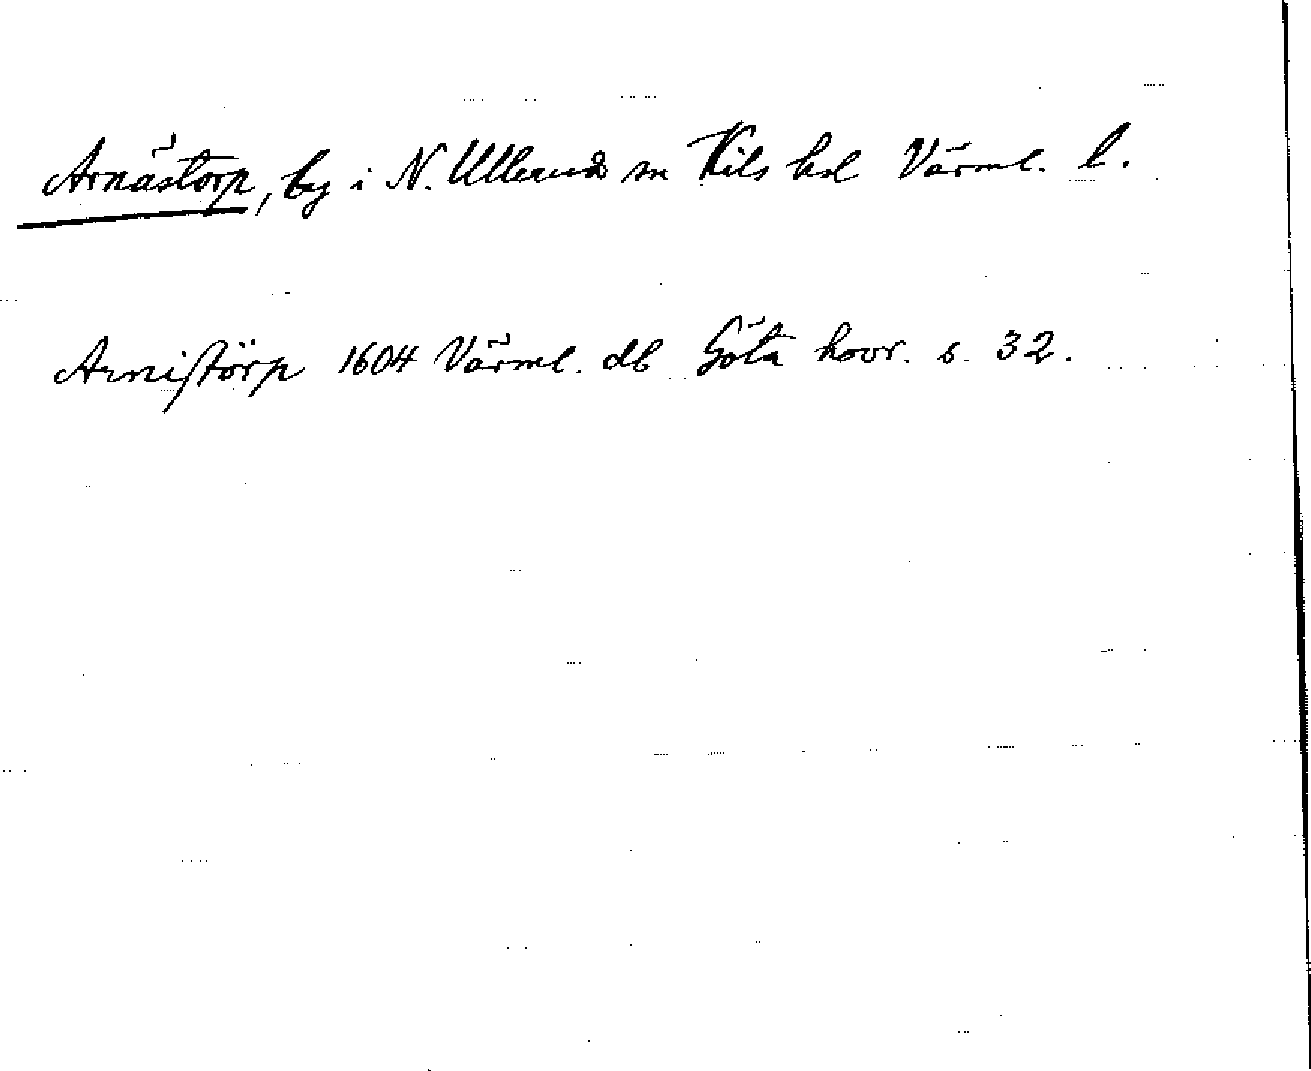 Arnästorp, by i N. Ullerud sn Kils hd Värml. l.
Arnistörp 1604 Värml. db Göta hovr. s. 32.